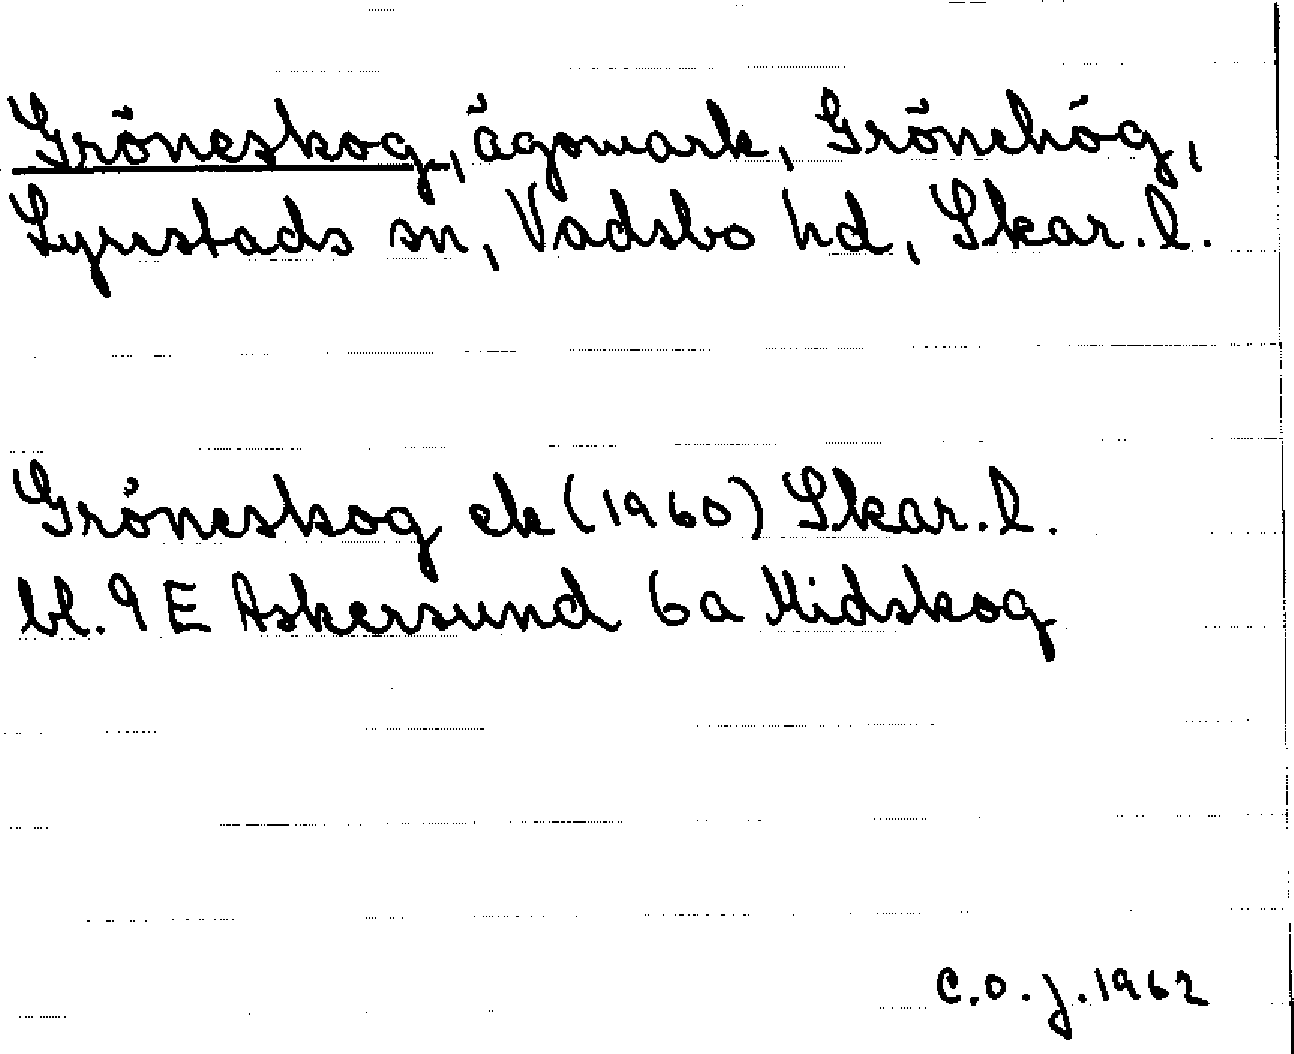 Gröneskog, ägomark, Grönehög,
Lyrestads sn, Vadsbo hd, Skar. l.
Gröneskog ek (1960) Skar. l.
bl. 9 E Askersund 6a Midskog
C.O.J. 1962